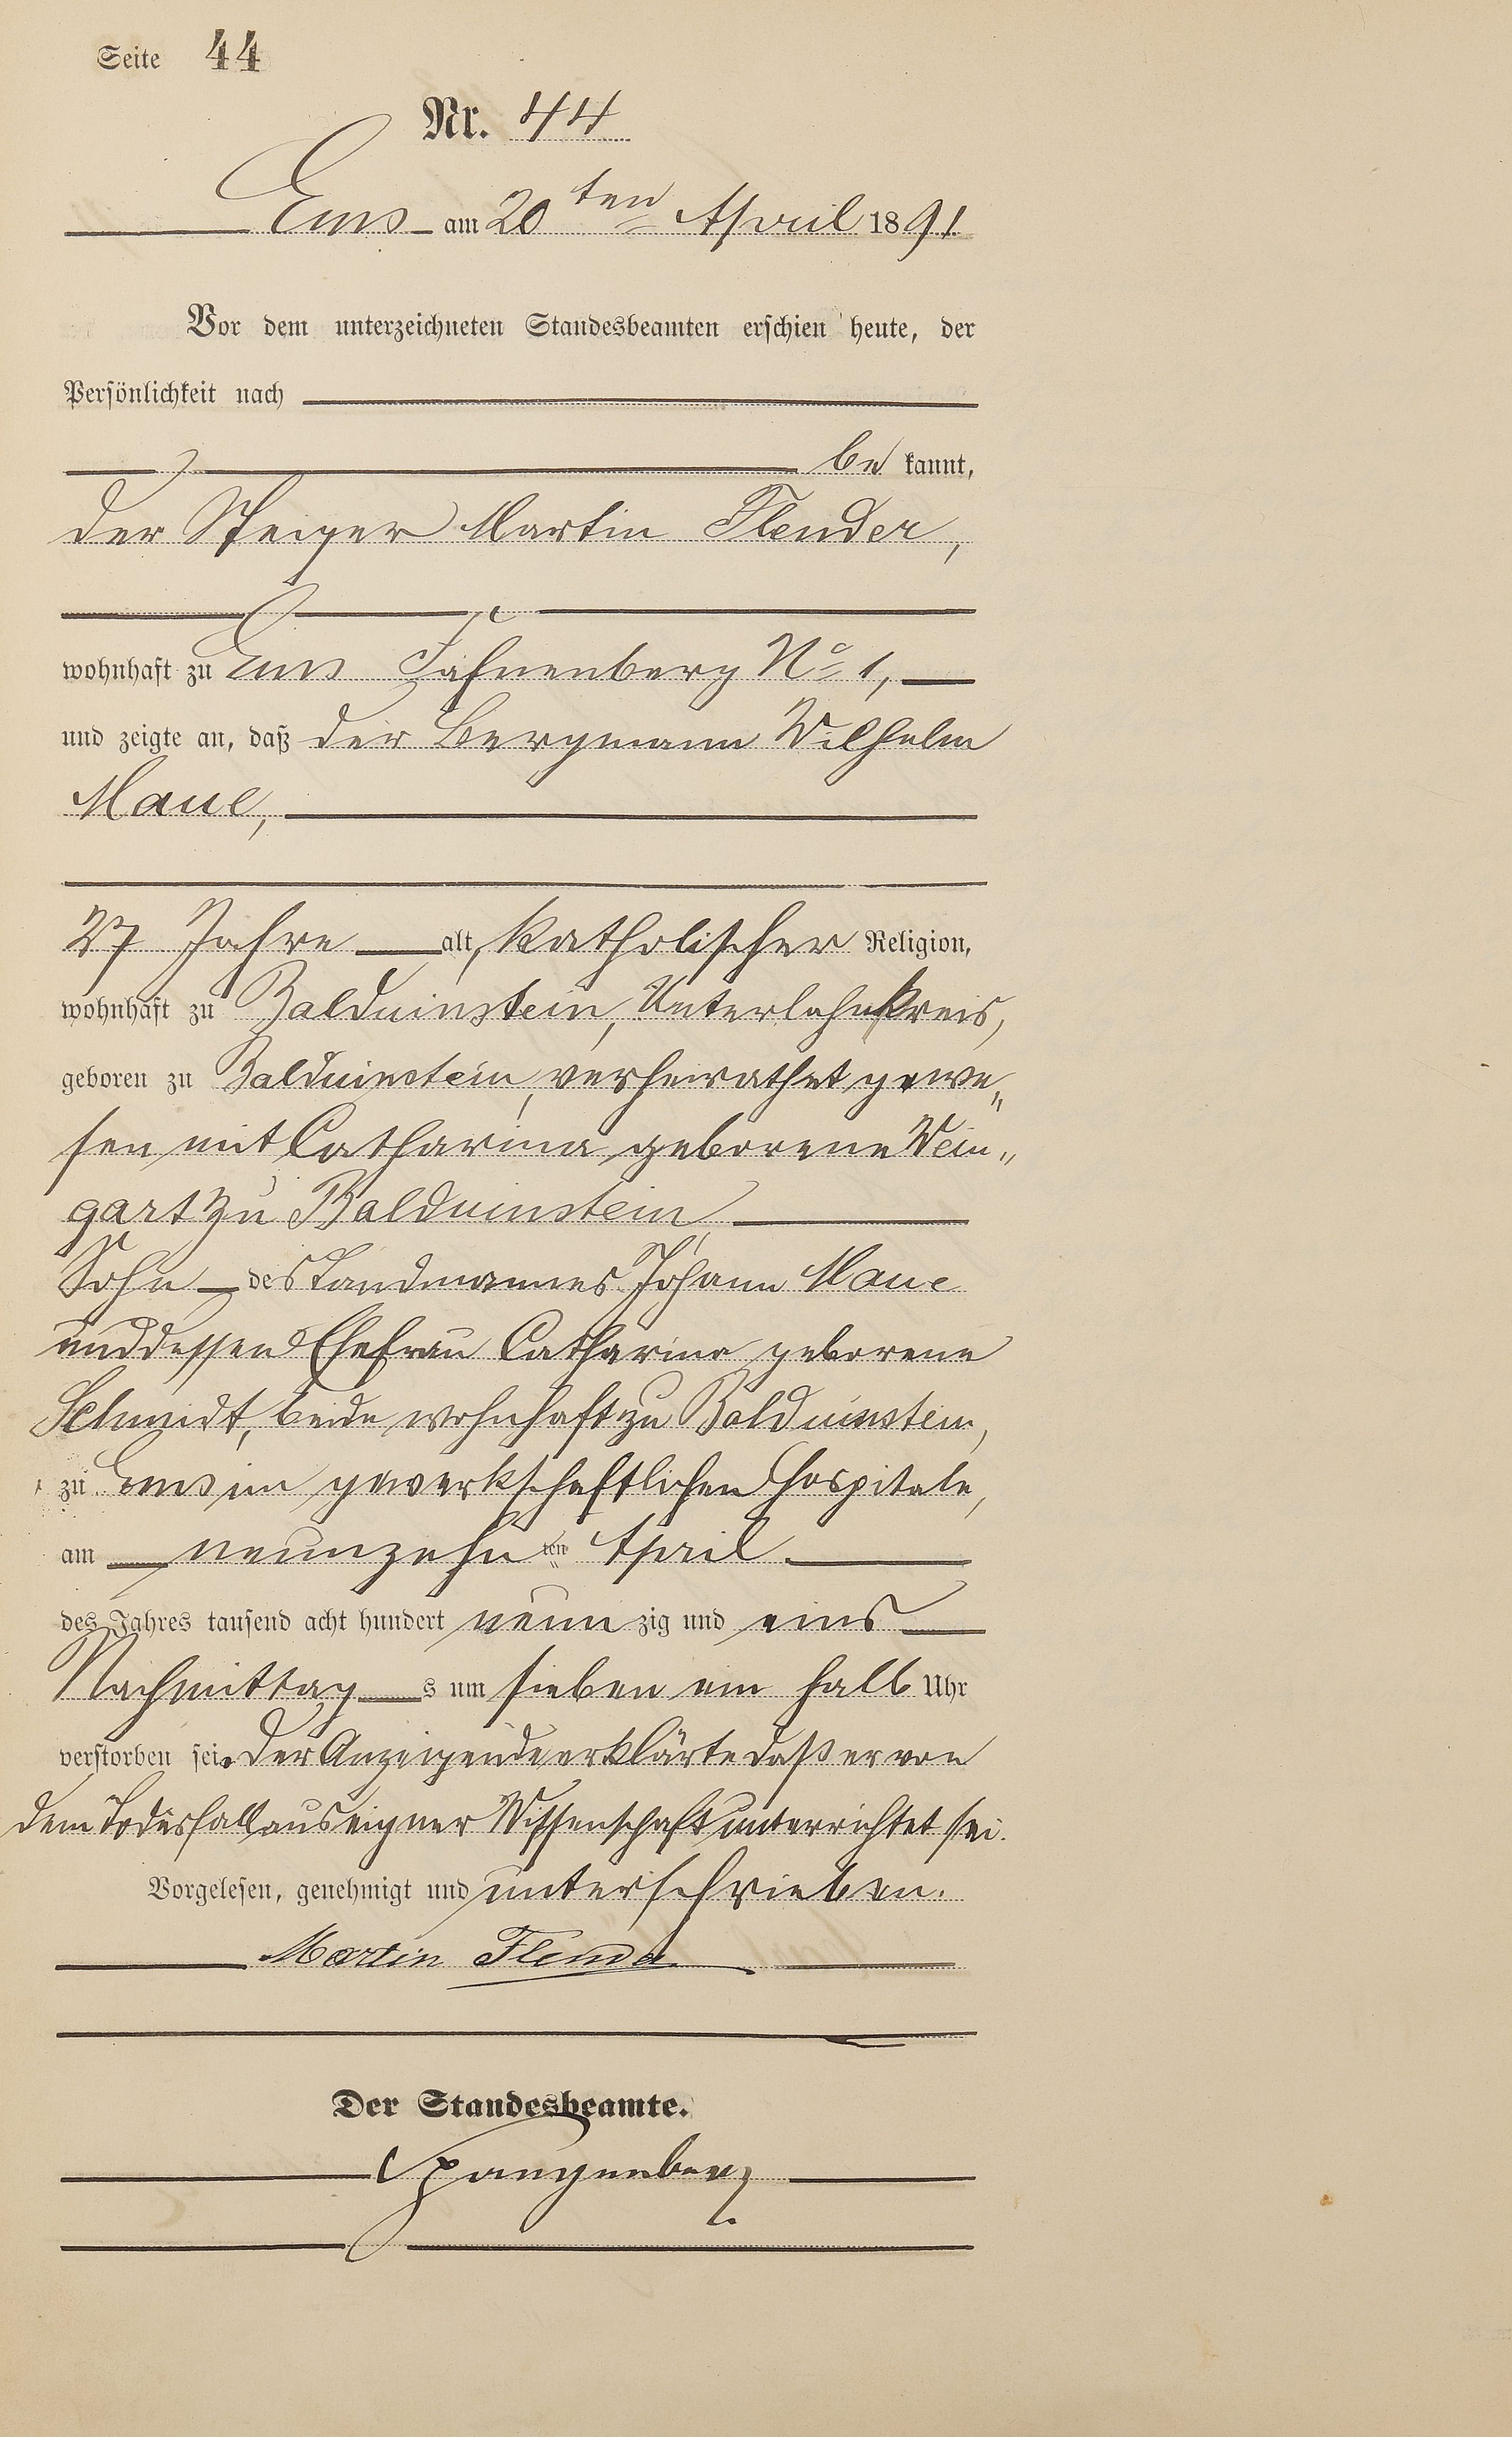 Seite 44
Nr. 44
Ems am 20ten April 1891
Vor dem unterzeichneten Standesbeamten erschien heute, der
Persönlichkeit nach
be kannt,
der Steiger Martin Flender,
wohnhaft zu Ems Fahnenberg No 1,
und zeigte an, daß der Bergmann Wilhelm
Maue,
27 Jahre alt, katholischer Religion,
wohnhaft zu Balduinstein, Unterlahnkreis,
geboren zu Balduinstein, verheirathet gewe„
sen mit Catharina geborene Wein„
gart zu Balduinstein,
Sohn des Landmannes Johann Maue
und dessen Ehefrau Catharina geborene
Schmidt, beide wohnhaft zu Balduinstein,
zu Ems im gewerkschaftlichen Hospitale,
am neunzehn ten April
des Jahres tausend acht hundert neun zig und eins
Nachmittag s um sieben ein halb Uhr
verstorben sei. Der Anzeigende erklärte daß er von
dem Todesfall aus eigner Wissenschaft unterrichtet sei.
Vorgelesen, genehmigt und unterschrieben.
Martin Flender
Der Standesbeamte.
Spangenberg